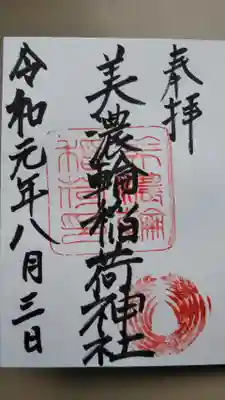 奉拝
美濃輪稲荷神社
令和元年八月三日